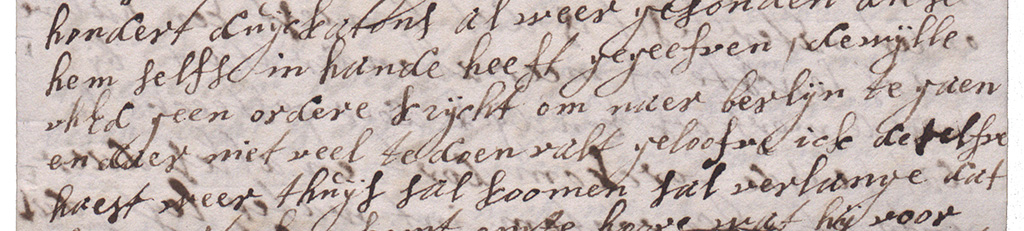 hondert duijckatons al weer gesonden die se
hem selfs in hande heeft gegeefven, demijlle
vhEd geen ordere krijcht om naer berlijn te gaen
en daer niet veel te doen valt geloofve ick deselfve
haest weer thuijs sal koomen sal verlange dat
hoore wat hij voor